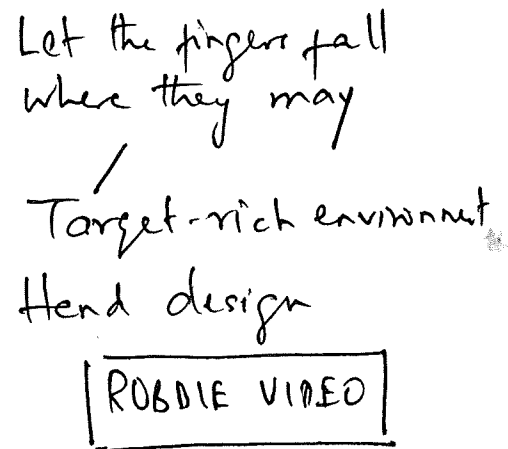 Let the fingers fall
where they may
/
Target-rich environment
Hand design
ROBDIE VIDEO